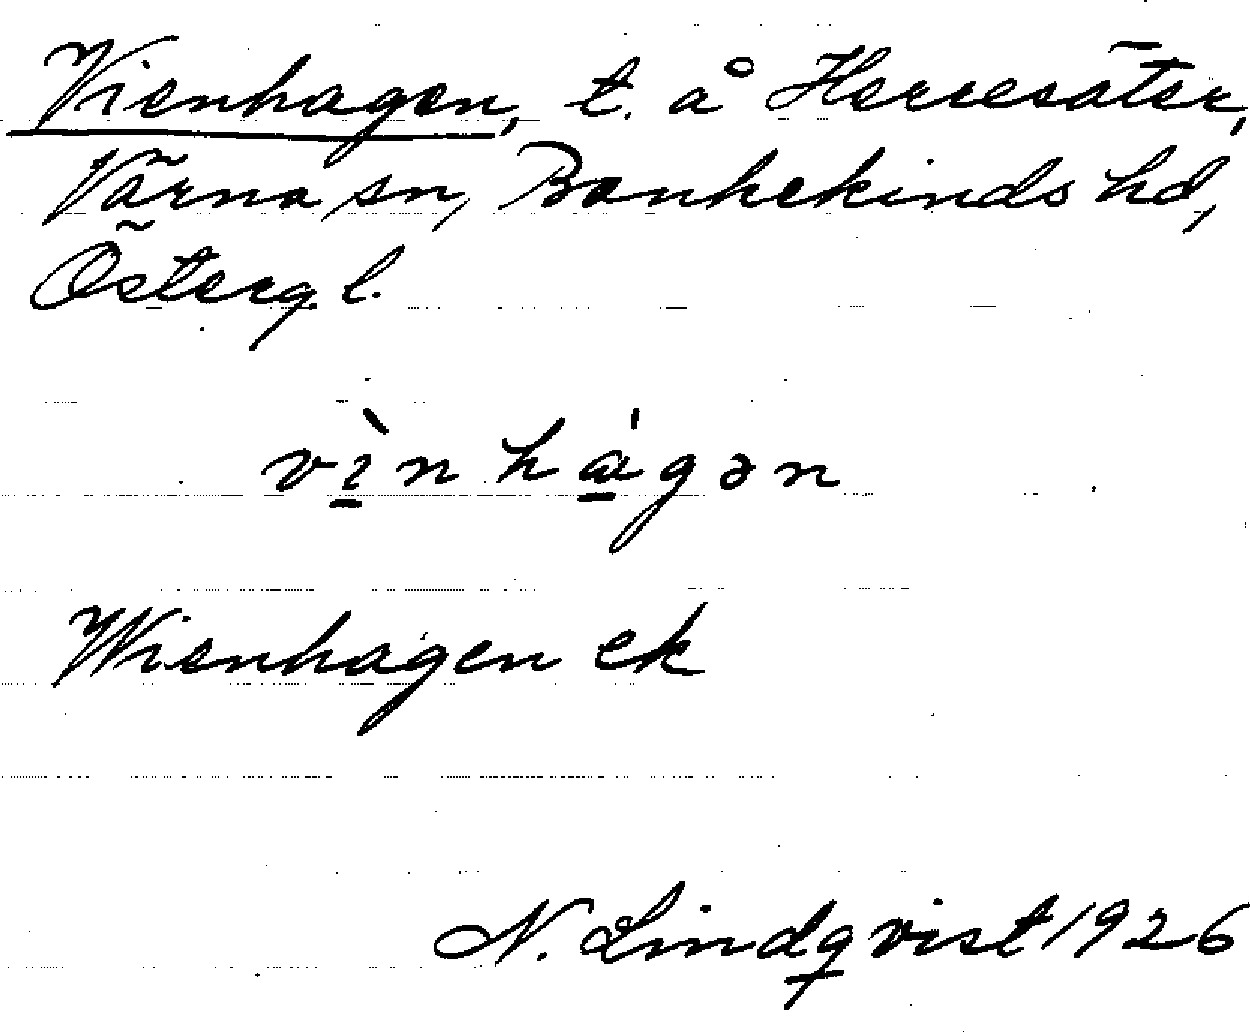 Vienhagen, t. å Herresäter,
Värna sn, Bankekinds hd,
Österg. l.
vı̲̀n há̲gən
Wienhagen ek
N. Lindqvist 1926